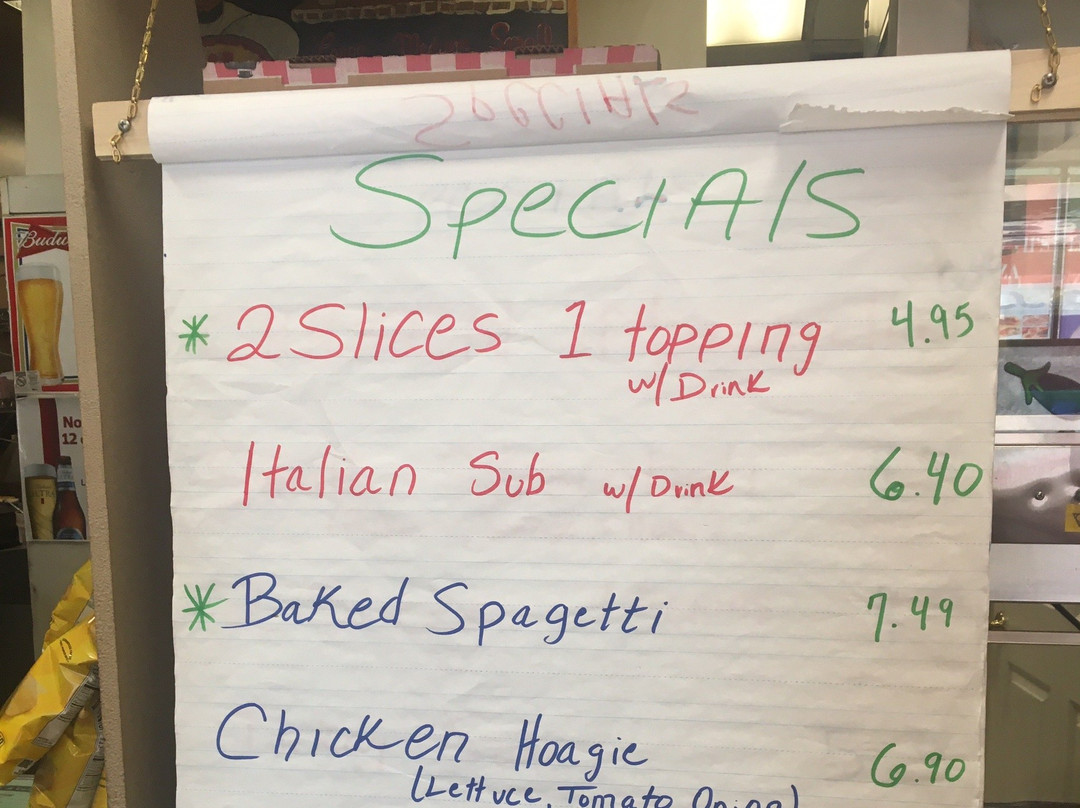 SpeciAls
SpeciAls
* 2 Slices 1 topping 4.95
w/ Drink
Italian Sub w/ Drink 6.40
* Baked Spagetti 7.49
Chicken Hoagie 6.90
(Lettuce, Tomato
Budw
No
12